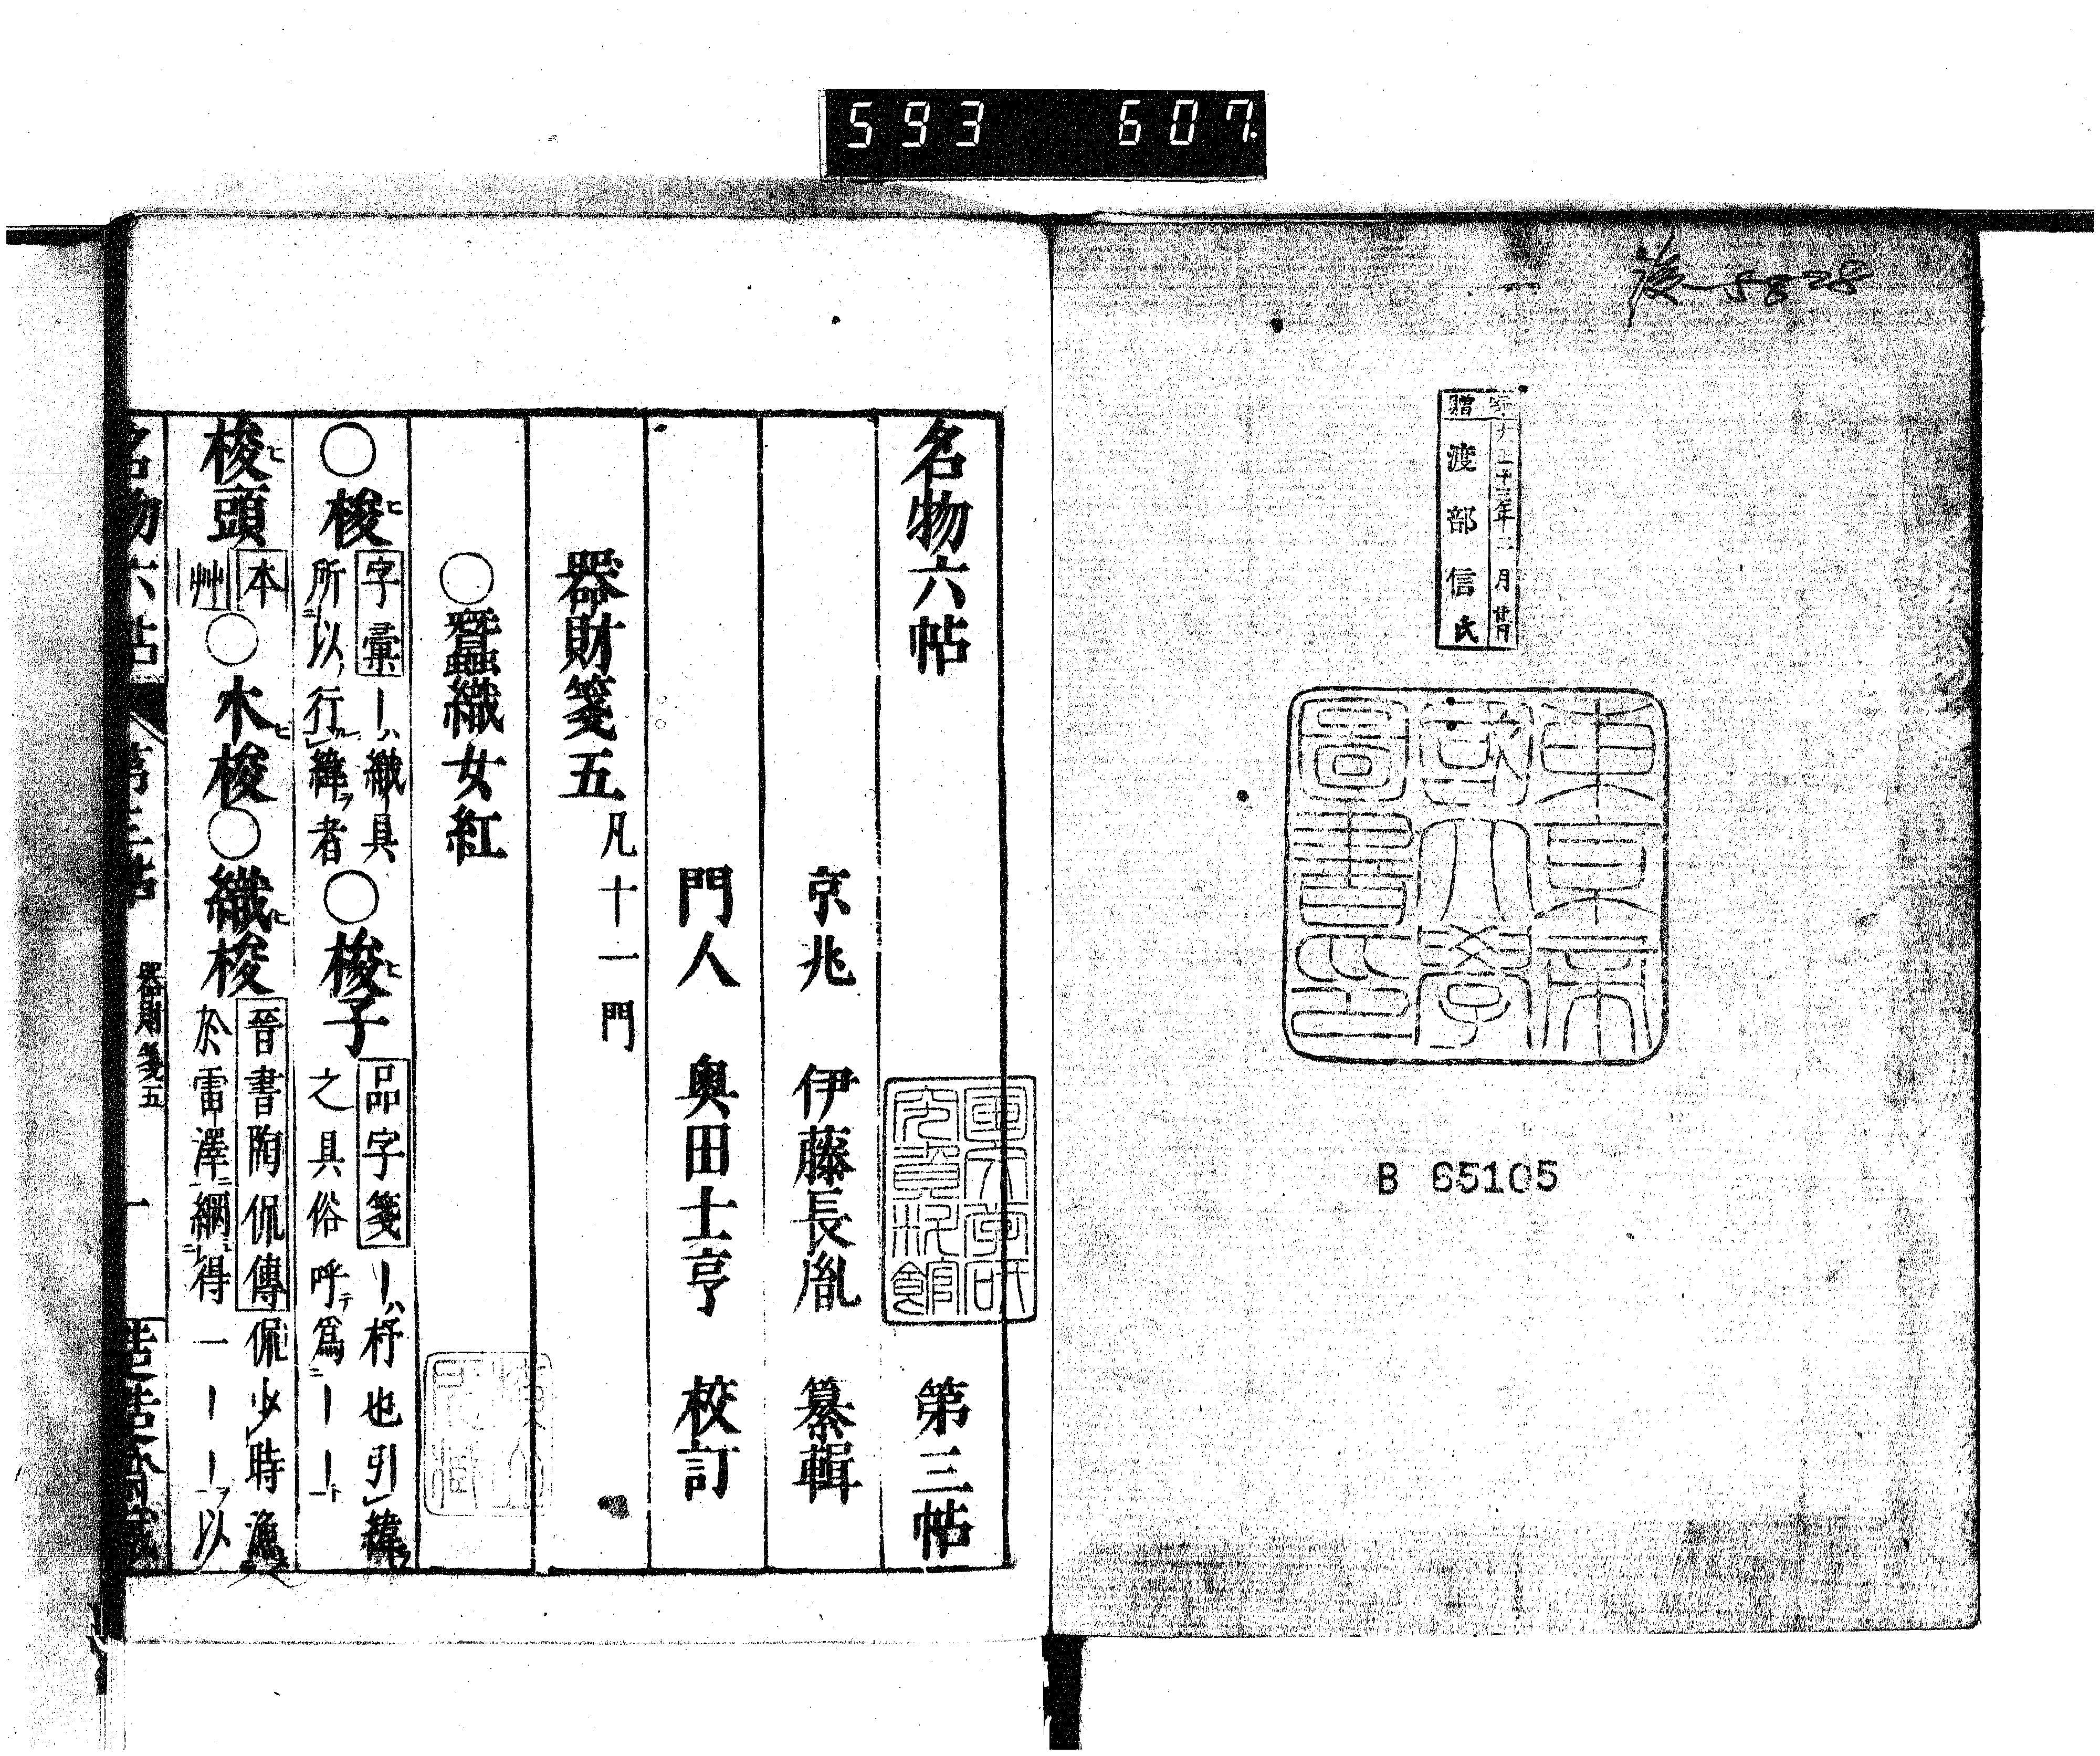 593 607
後-5828
寄贈
大正十三年二月廿日
渡部信氏
東京帝
國大學
圖書印
B 65105
名物六帖 第三帖
京兆 伊藤長胤 纂輯
門人 奥田士亨 校訂
器財箋五 凡十一門
○蠶織女紅
○梭ヒ 字彙 ーハ織具
所以行緯者
○梭子ヒ 品字箋 ーハ杼也引緯
之具俗呼爲ーー
梭頭ヒ 本艸 ○木梭ヒ ○織梭ヒ 晉書陶侃傳 侃少時漁
於雷澤網得一ーー以
名物六帖 第三帖 器財箋五 一